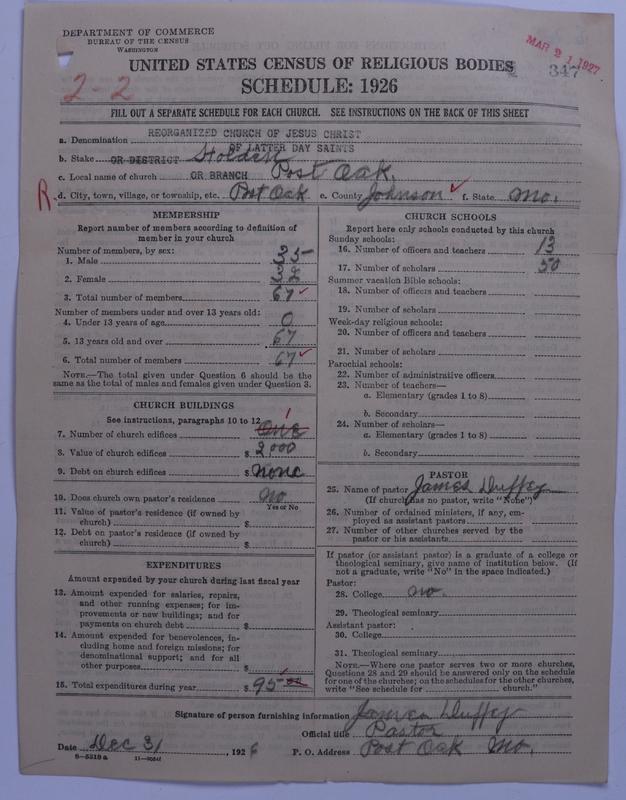 DEPARTMENT OF COMMERCE
BUREAU OF THE CENSUS
WASHINGTON
MAR 21 1927
347
UNITED STATES CENSUS OF RELIGIOUS BODIES
SCHEDULE: 1926
2-2
FILL OUT A SEPARATE SCHEDULE FOR EACH CHURCH. SEE INSTRUCTIONS ON THE BACK OF THIS SHEET
a. Denomination REORGANIZED CHURCH OF JESUS CHRIST
OF LATTER DAY SAINTS
b. Stake OR DISTRICT Holden
c. Local name of church OR BRANCH Post Oak.
R. d. City, town, village, or township, etc. Post Oak e. County Johnson f. State Mo.
MEMBERSHIP
Report number of members according to definition of
member in your church
Number of members, by sex:
1. Male 35
2. Female 32
3. Total number of members 67
Number of members under and over 13 years old:
4. Under 13 years of age 0
5. 13 years old and over 67
6. Total number of members 67
NOTE.—The total given under Question 6 should be the
same as the total of males and females given under Question 3.
CHURCH BUILDINGS
See instructions, paragraphs 10 to 12
1
7. Number of church edifices One
8. Value of church edifices $ 2000
9. Debt on church edifices $ none
10. Does church own pastor's residence no
Yes or No
11. Value of pastor's residence (if owned by
church) $
12. Debt on pastor's residence (if owned by
church) $
EXPENDITURES
Amount expended by your church during last fiscal year
13. Amount expended for salaries, repairs,
and other running expenses; for im-
provements or new buildings; and for
payments on church debt $
14. Amount expended for benevolences, in-
cluding home and foreign missions; for
denominational support; and for all
other purposes $
15. Total expenditures during year $ 95 00
CHURCH SCHOOLS
Report here only schools conducted by this church
Sunday schools:
16. Number of officers and teachers 13
17. Number of scholars 50
Summer vacation Bible schools:
18. Number of officers and teachers
19. Number of scholars
Week-day religious schools:
20. Number of officers and teachers
21. Number of scholars
Parochial schools:
22. Number of administrative officers
23. Number of teachers—
a. Elementary (grades 1 to 8)
b. Secondary
24. Number of scholars—
a. Elementary (grades 1 to 8)
b. Secondary
PASTOR
25. Name of pastor James Duffey
(If church has no pastor, write "None")
26. Number of ordained ministers, if any, em-
ployed as assistant pastors
27. Number of other churches served by the
pastor or his assistants
If pastor (or assistant pastor) is a graduate of a college or
theological seminary, give name of institution below. (If
not a graduate, write "No" in the space indicated.)
Pastor:
28. College no.
29. Theological seminary
Assistant pastor:
30. College
31. Theological seminary
NOTE.—Where one pastor serves two or more churches,
Questions 28 and 29 should be answered only on the schedule
for one of the churches; on the schedules for the other churches,
write "See schedule for church."
Signature of person furnishing information James Duffey
Official title Pastor
Date Dec 31, 1926 P. O. Address Post Oak Mo.
8-5318a